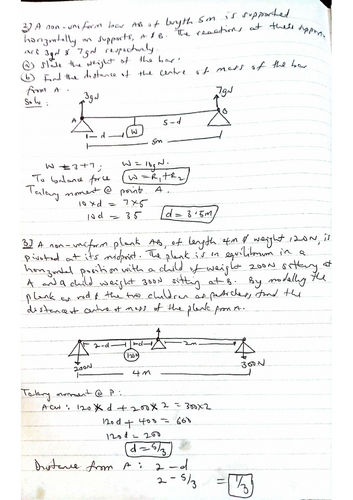 2) A non-uniform bar AB of length 5m is supported
horizontally on supports, A & B. The reactions at these
are 3gN & 7gN respectively.
(a) State the weight of the bar.
(b) Find the distance of the centre of mass of the bar
from A.
Soln:
3gN
7gN
A
B
d
W
5-d
5m
W = 3+7; W = 10gN.
To balance force W = R1 + R2
Taking moment @ point A.
10 x d = 7 x 5
10d = 35 d = 3.5m
3) A non-uniform plank AB, of length 4m & weight 120N, is
pivoted at its midpoint. The plank is in equilibrium in a
horizontal position with a child of weight 200N sitting at
A and a child weight 300N sitting at B. By modelling the
plank as rod & the two children as particles, find the
distance of centre of mass of the plank from A.
2-d
d
2m
120N
200N
300N
4m
Taking moment @ P:
ACW: 120 x d + 200 x 2 = 300 x 2
120d + 400 = 600
120d = 200
d = 5/3
Distance from A: 2 - d
2 - 5/3 = 1/3